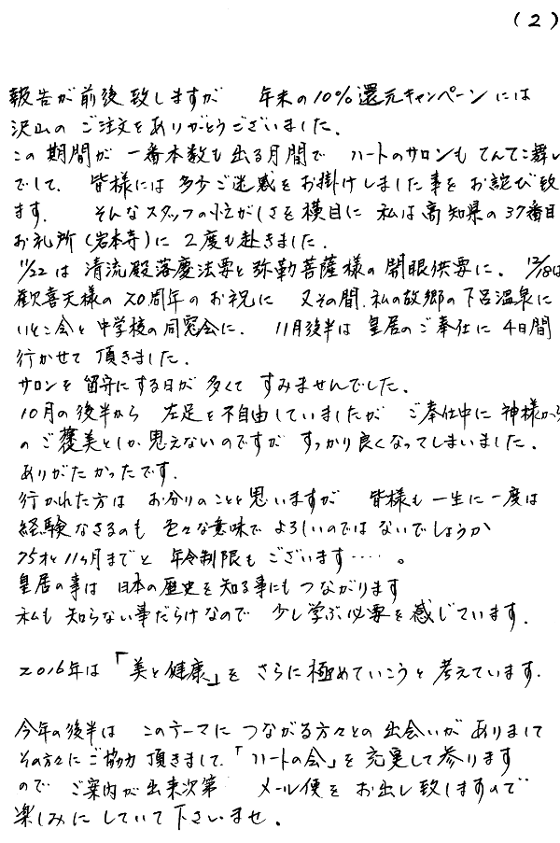 (2)
報告が前後致しますが 年末の10%還元キャンペーンには
沢山のご注文をありがとうございました。
この期間が一番本数も出る月間で ハートのサロンもてんてこ舞い
でして、皆様には多少ご迷惑をお掛けしました事をお詫び致
ます。 そんなスタッフの忙がしさを横目に 私は高知県の37番目
お礼所(岩本寺)に 2度も赴きました。
11/22は 清流殿落慶法要と弥勒菩薩様の開眼供要に。12/18は
歓喜天様の20周年のお祝に 又その間、私の故郷の下呂温泉に
いとこ会と中学校の同窓会に、 11月後半は皇居のご奉仕に4日間
行かせて頂きました。
サロンを留守にする日が多くてすみませんでした。
10月の後半から 左足を不自由していましたが ご奉仕中に神様から
のご褒美としか思えないのですが すっかり良くなってしまいました。
ありがたかったです。
行かれた方は お分りのことと思いますが 皆様も一生に一度は
経験なさるのも 色々な意味でよろしいのではないでしょうか
75才と11ヶ月までと 年令制限もございます・・・・。
皇居の事は 日本の歴史を知る事にもつながります
私も知らない事だらけなので 少し学ぶ必要を感じています。
2016年は「美と健康」を さらに極めていこうと考えています。
今年の後半は このテーマにつながる方々との出会いがありまして
その方々にご協力頂きまして、「ハートの会」を充実して参ります
ので ご案内が出来次第 メール便をお出し致しますので
楽しみにしていて下さいませ。